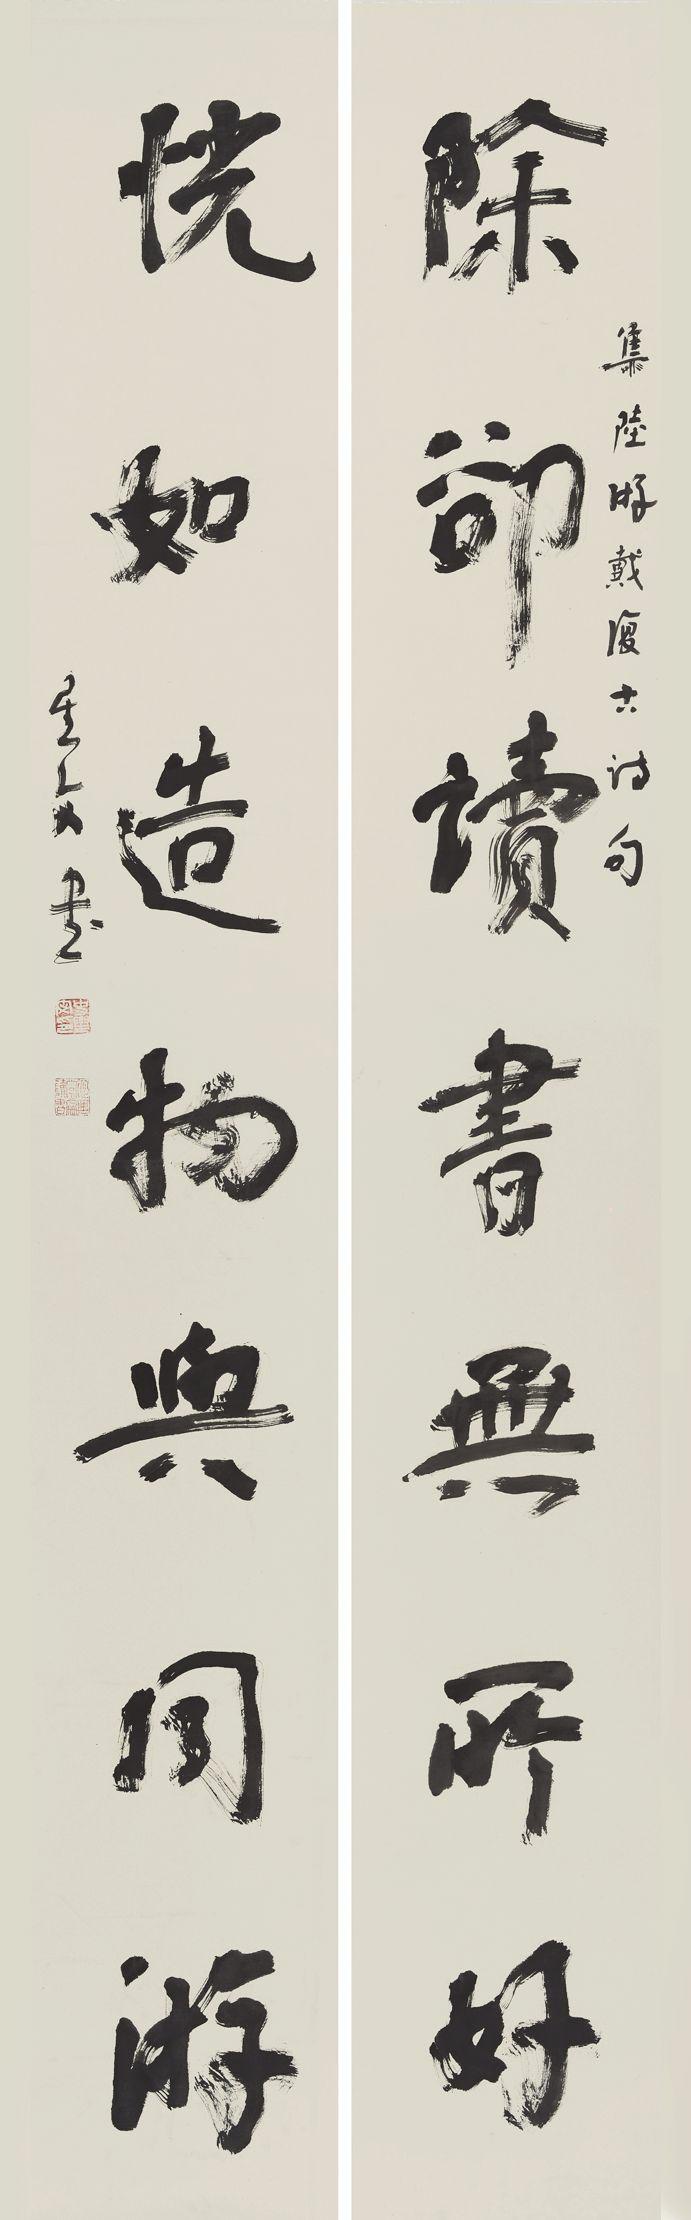 除卻讀書無所好
集陸游戴復古詩句
恍如造物與同游
星文書